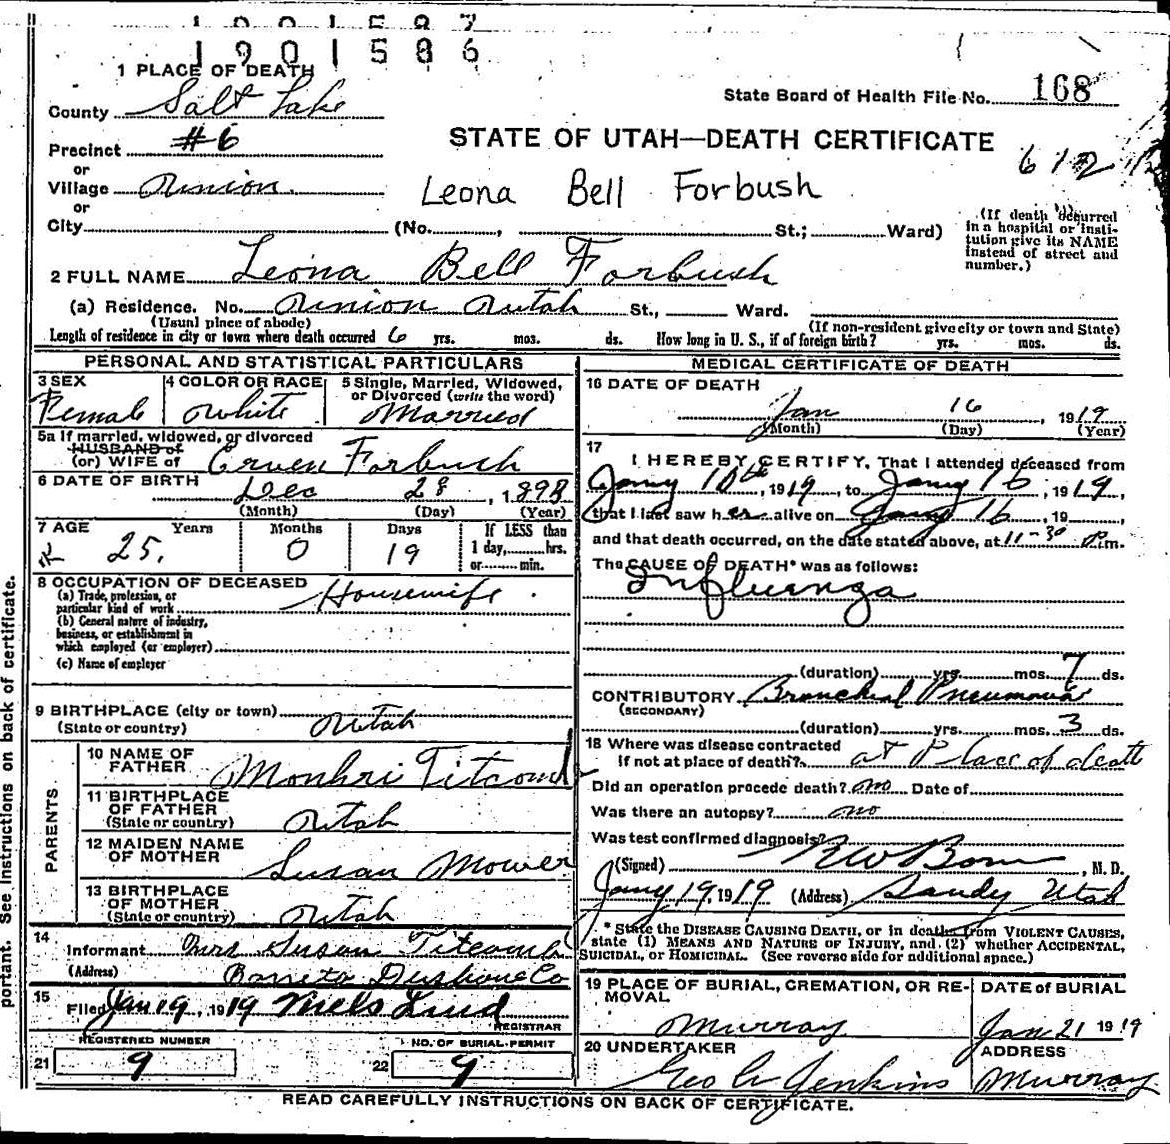 1901587
1901586
1 PLACE OF DEATH
County Salt Lake
State Board of Health File No. 168
Precinct #6
STATE OF UTAH—DEATH CERTIFICATE
612
or
Village Union
Leona Bell Forbush
or
City (No. , St.; Ward)
(If death occurred in a hospital or institution give its NAME instead of street and number.)
2 FULL NAME Leona Bell Forbush
(a) Residence. No. Union Utah St., Ward.
(Usual place of abode) (If non-resident give city or town and State)
Length of residence in city or town where death occurred 6 yrs. mos. ds. How long in U. S., if of foreign birth? yrs. mos. ds.
PERSONAL AND STATISTICAL PARTICULARS
3 SEX Female
4 COLOR OR RACE White
5 Single, Married, Widowed, or Divorced (write the word) Married
5a If married, widowed, or divorced
HUSBAND of
(or) WIFE of Erven Forbush
6 DATE OF BIRTH Dec 28, 1893
(Month) (Day) (Year)
7 AGE Years Months Days If LESS than
25. 0 19 1 day,.....hrs.
or......min.
8 OCCUPATION OF DECEASED
(a) Trade, profession, or particular kind of work Housewife
(b) General nature of industry, business, or establishment in which employed (or employer)
(c) Name of employer
9 BIRTHPLACE (city or town)
(State or country) Utah
PARENTS
10 NAME OF FATHER Titcomb
11 BIRTHPLACE OF FATHER
(State or country) Utah
12 MAIDEN NAME OF MOTHER Susan Mower
13 BIRTHPLACE OF MOTHER
(State or country) Utah
14
Informant Mrs Susan Titcomb
(Address) Boneta Dushane Co
15
Filed Jan 19, 1919 Niels Lind
REGISTRAR
REGISTERED NUMBER NO. OF BURIAL-PERMIT
21 9 22 9
MEDICAL CERTIFICATE OF DEATH
16 DATE OF DEATH
Jan 16, 1919
(Month) (Day) (Year)
17
I HEREBY CERTIFY, That I attended deceased from
Jany 10th, 1919, to Jany 16, 1919,
that I last saw her alive on Jany 16, 19
and that death occurred, on the date stated above, at 11-30 P.m.
The CAUSE OF DEATH* was as follows:
Influenza
(duration) yrs. mos. 7 ds.
CONTRIBUTORY Bronchial Pneumonia
(SECONDARY)
(duration) yrs. mos. 3 ds.
18 Where was disease contracted
If not at place of death? at Place of death
Did an operation precede death? no Date of
Was there an autopsy? no
Was test confirmed diagnosis?
(Signed) , M. D.
Jany 19, 1919 (Address) Sandy Utah
* State the DISEASE CAUSING DEATH, or in deaths from VIOLENT CAUSES,
state (1) MEANS AND NATURE OF INJURY, and (2) whether ACCIDENTAL,
SUICIDAL, or HOMICIDAL. (See reverse side for additional space.)
19 PLACE OF BURIAL, CREMATION, OR REMOVAL
Murray
DATE of BURIAL
Jan 21 1919
20 UNDERTAKER
Geo A Jenkins
ADDRESS
Murray
READ CAREFULLY INSTRUCTIONS ON BACK OF CERTIFICATE.
portant. See instructions on back of certificate.